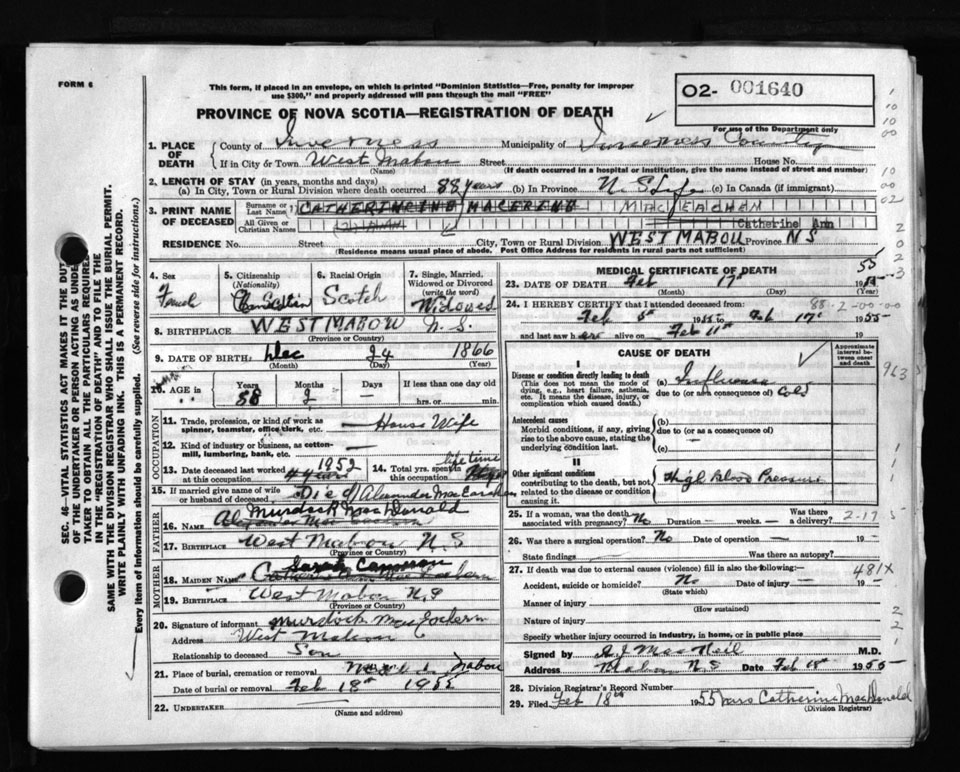 FORM 6
This form, if placed in an envelope, on which is printed "Dominion Statistics—Free, penalty for improper
use $300," and properly addressed will pass through the mail "FREE"
02- 001640
For use of the Department only
PROVINCE OF NOVA SCOTIA—REGISTRATION OF DEATH
SEC. 46—VITAL STATISTICS ACT MAKES IT THE DUTY
OF THE UNDERTAKER OR PERSON ACTING AS UNDER-
TAKER TO OBTAIN ALL THE PARTICULARS REQUIRED
IN THE "REGISTRATION OF DEATH" AND TO FILE THE
SAME WITH THE DIVISION REGISTRAR WHO SHALL ISSUE THE BURIAL PERMIT.
WRITE PLAINLY WITH UNFADING INK. THIS IS A PERMANENT RECORD.
Every item of information should be carefully supplied. (See reverse side for instructions.)
1. PLACE OF DEATH County of Inverness Municipality of Inverness County
If in City or Town West Mabou (Name) Street House No.
(If death occurred in a hospital or institution, give the name instead of street and number)
2. LENGTH OF STAY (in years, months and days)
(a) In City, Town or Rural Division where death occurred 88 years (b) In Province N.S. Life (c) In Canada (if immigrant)
3. PRINT NAME OF DECEASED Surname or Last Name MAC EACHEN
All Given or Christian Names Catherine Ann
RESIDENCE No. Street City, Town or Rural Division WEST MABOU Province NS
(Residence means usual place of abode. Post Office Address for residents in rural parts not sufficient)
4. Sex 5. Citizenship (Nationality) 6. Racial Origin 7. Single, Married, Widowed or Divorced (write the word)
Female Canadian Scotch Widowed
8. BIRTHPLACE WEST MABOU N.S.
(Province or Country)
9. DATE OF BIRTH: Dec 24 1866
(Month) (Day) (Year)
10. AGE in Years Months Days If less than one day
58 2 — hrs. or min.
OCCUPATION
11. Trade, profession, or kind of work as
spinner, teamster, office clerk, etc. House Wife
12. Kind of industry or business, as cotton-
mill, lumbering, bank, etc. —
13. Date deceased last worked at this occupation 1952 14. Total yrs. spent in this occupation life time
15. If married give name of wife
or husband of deceased Die of Alexander MacEachen
FATHER
16. NAME Murdock MacDonald
17. BIRTHPLACE West Mabou N.S
(Province or Country)
MOTHER
18. MAIDEN NAME Sarah Cameron
19. BIRTHPLACE West Mabou N.S
(Province or Country)
20. Signature of informant Murdock MacEachern
Address West Mabou
Relationship to deceased Son
21. Place of burial, cremation or removal Mabou
Date of burial or removal Feb 18th 1955
22. UNDERTAKER
(Name and address)
MEDICAL CERTIFICATE OF DEATH
23. DATE OF DEATH Feb 17th 55
(Month) (Day) (Year)
88-2-00-00
24. I HEREBY CERTIFY that I attended deceased from:
Feb 5th 1955 to Feb 17th 1955
and last saw her alive on Feb 11th 19
CAUSE OF DEATH
Approximate interval between onset and death
I
Disease or condition directly leading to death
(This does not mean the mode of
dying, e.g., heart failure, asthenia,
etc. It means the disease, injury, or
complication which caused death.)
(a) Influenza
due to (or as a consequence of) Cold
Antecedent causes
Morbid conditions, if any, giving
rise to the above cause, stating the
underlying condition last.
(b)
due to (or as a consequence of)
(c)
II
Other significant conditions
contributing to the death, but not
related to the disease or condition
causing it.
High Blood Pressure
963
25. If a woman, was the death associated with pregnancy? No Duration — weeks. — Was there a delivery?
2-17 5
26. Was there a surgical operation? No Date of operation — 19 —
State findings Was there an autopsy?
27. If death was due to external causes (violence) fill in also the following:—
481X
Accident, suicide or homicide? No Date of injury — 19 —
(State which)
Manner of injury
(How sustained)
Nature of injury
Specify whether injury occurred in industry, in home, or in public place
Signed by A J MacNeil M.D.
Address Mabou N.S Date Feb 18th 1955
28. Division Registrar's Record Number
29. Filed Feb 18th 1955 Mrs Catherine MacDonald
(Division Registrar)